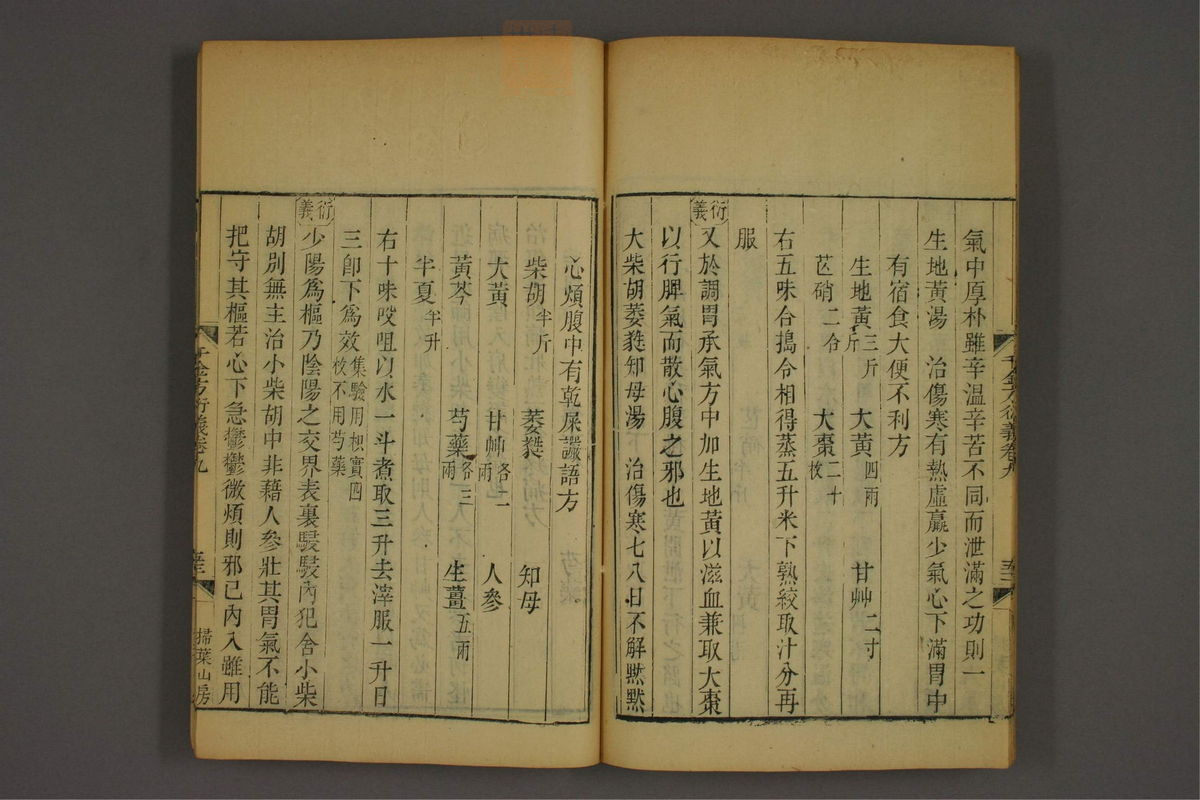 氣中厚朴雖辛溫辛苦不同而泄滿之功則一
生地黃湯 治傷寒有熱虛羸少氣心下滿胃中
有宿食大便不利方
生地黃三斤 大黃四兩 甘艸二寸
芒硝二合 大棗二十枚
右五味合搗令相得蒸五升米下熟絞取汁分再
服
衍義
又於調胃承氣方中加生地黃以滋血兼取大棗
以行脾氣而散心腹之邪也
大柴胡萎蕤知母湯 治傷寒七八日不解默默
心煩腹中有乾屎讝語方
柴胡半斤 萎蕤 知母
大黃 甘艸各二兩 人參
黃芩 芍藥各三兩 生薑五兩
半夏半升
右十味㕮咀以水一斗煮取三升去滓服一升日
三卽下爲效集驗用枳實四枚不用芍藥
衍義
少陽爲樞乃陰陽之交界表裏駸駸內犯舍小柴
胡別無主治小柴胡中非藉人參壯其胃氣不能
把守其樞若心下急鬱鬱微煩則邪已內入雖用
千金方衍義卷九
掃葉山房